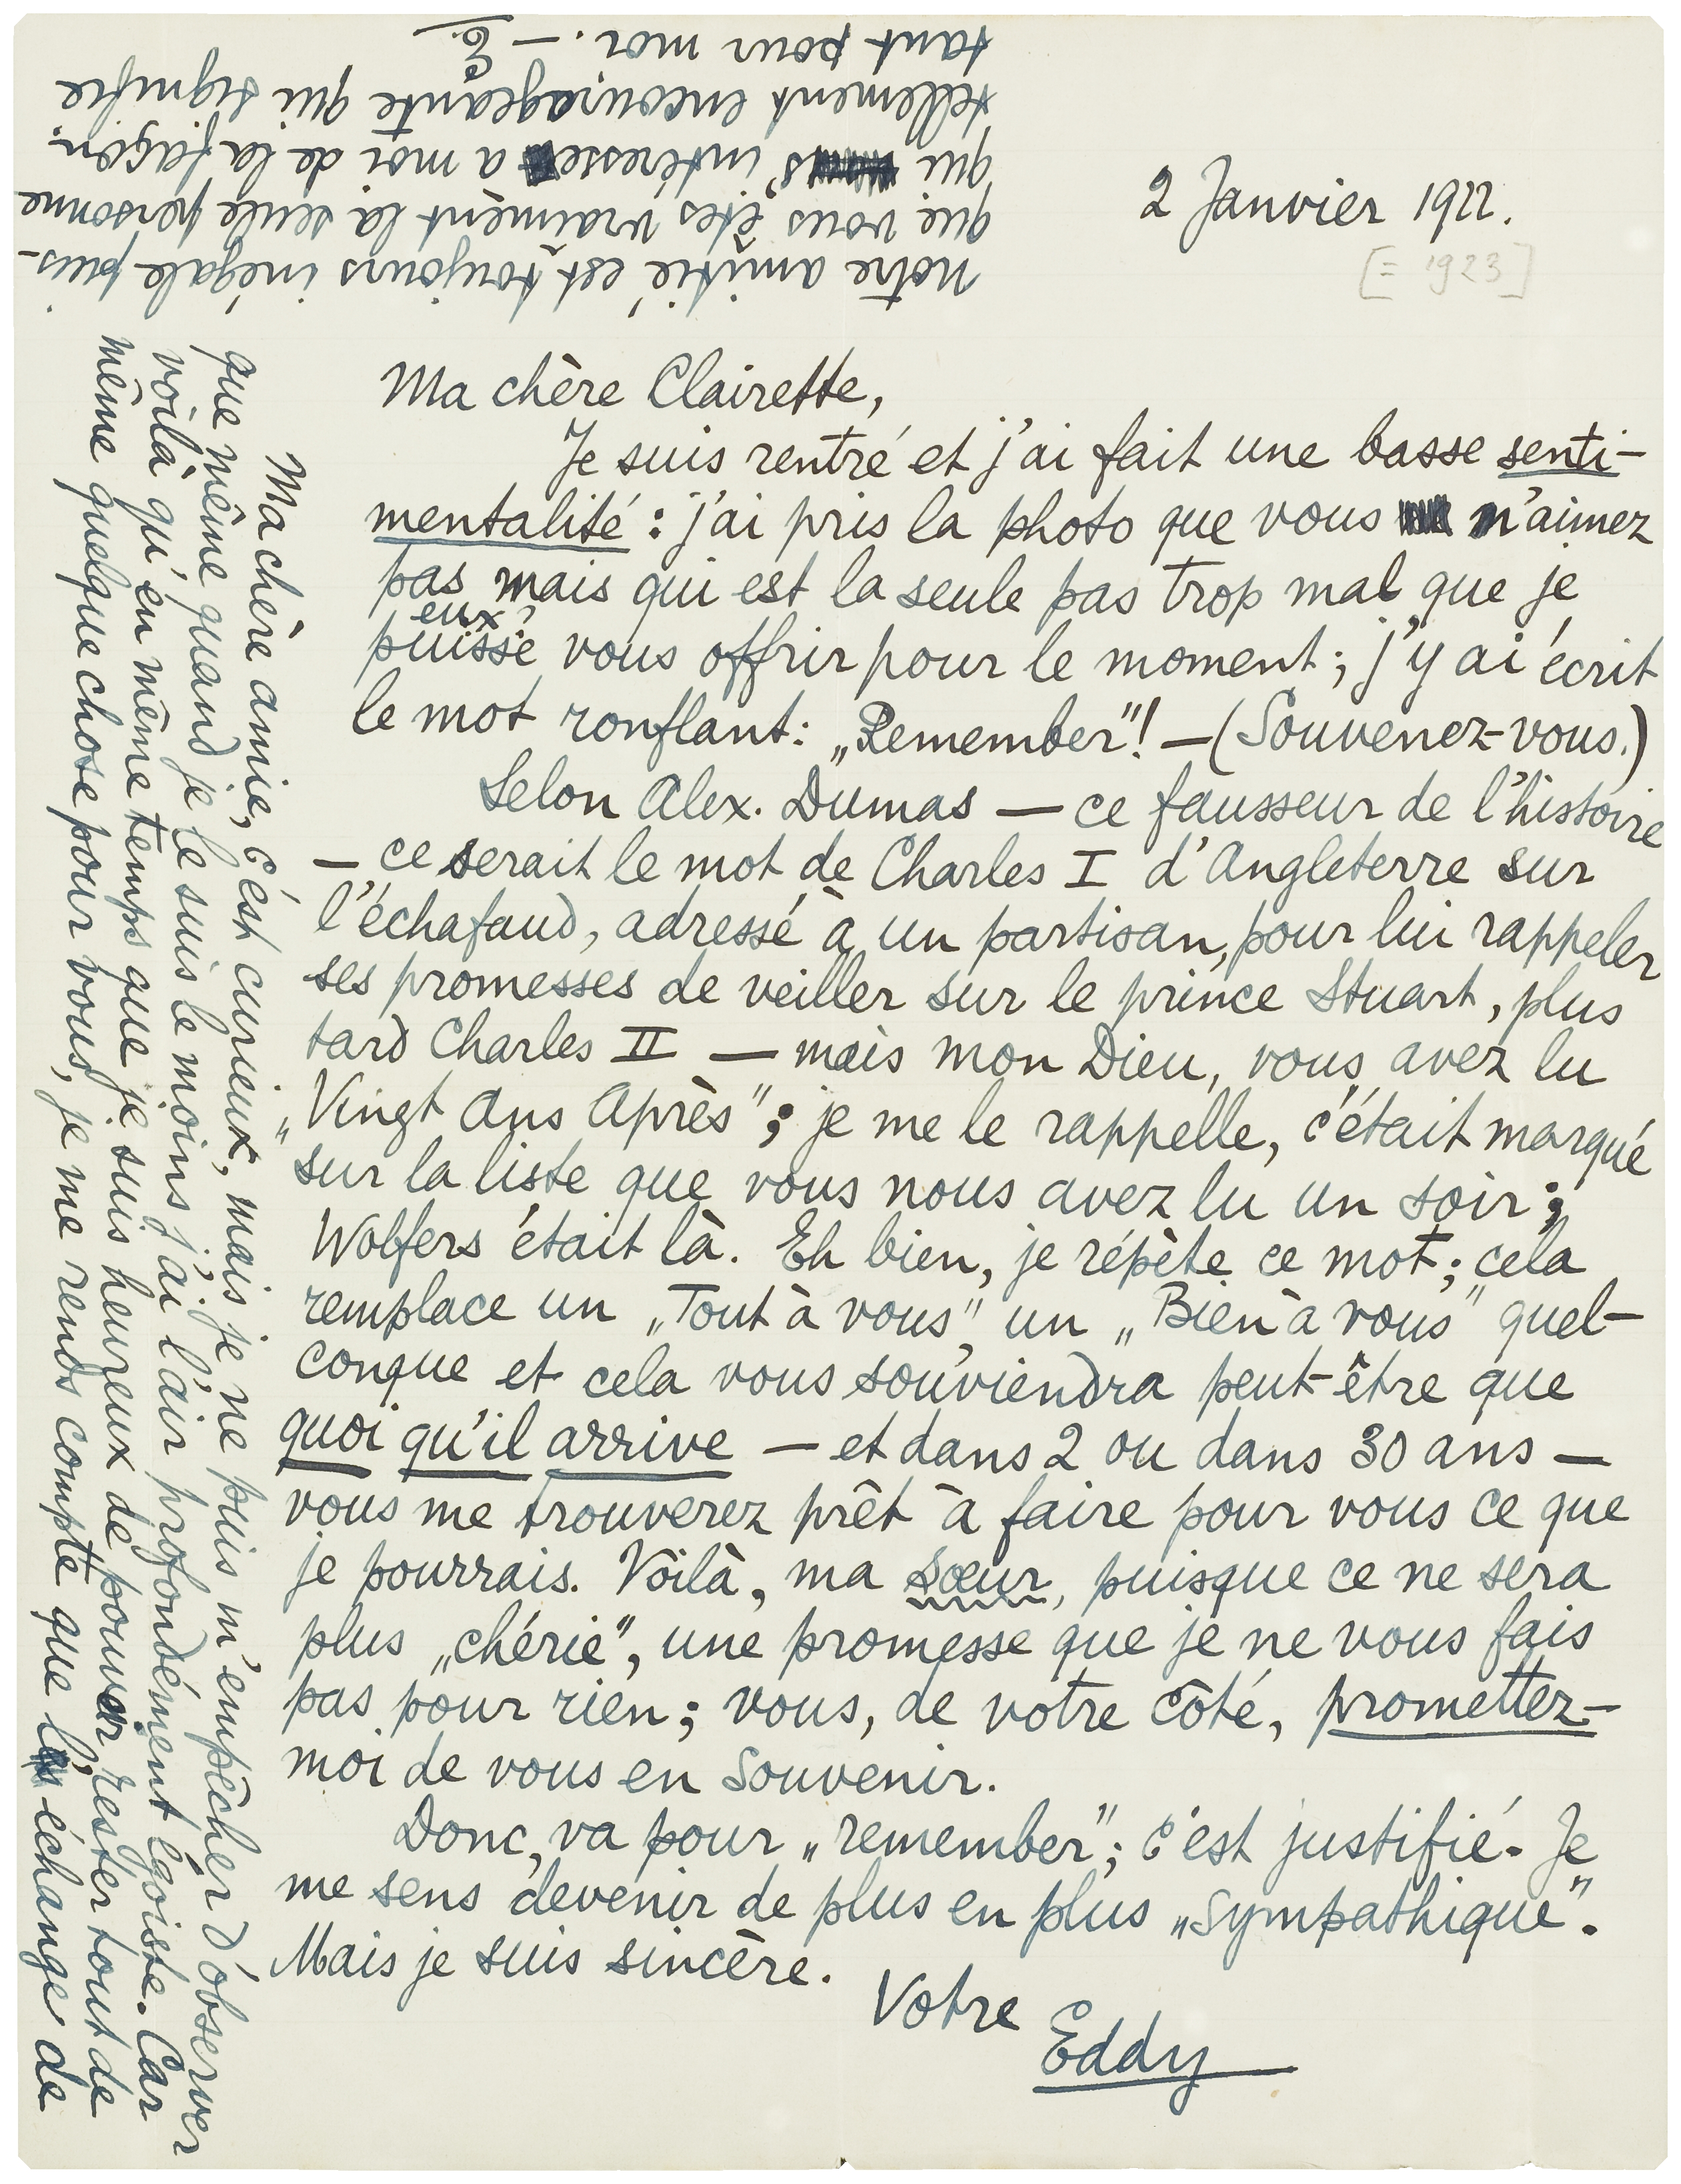 2 Janvier 1922.
[= 1923]
Ma chère Clairette,
Je suis rentré et j'ai fait une basse senti-
mentalité : j'ai pris la photo que vous n'aimez
pas mais qui est la seule pas trop mal que je
eux?
puisse vous offrir pour le moment ; j'y ai écrit
le mot ronflant : „Remember"! — (Souvenez-vous.)
Selon Alex. Dumas — ce fausseur de l'histoire
— ce serait le mot de Charles I d'Angleterre sur
l'échafaud, adressé à un partisan, pour lui rappeler
ses promesses de veiller sur le prince Stuart, plus
tard Charles II — mais mon Dieu, vous avez lu
„Vingt Ans Après" ; je me le rappelle, c'était marqué
sur la liste que vous nous avez lu un soir ;
Wolfers était là. Eh bien, je répète ce mot ; cela
remplace un „Tout à vous", un „Bien à vous" quel-
conque et cela vous souviendra peut-être que
quoi qu'il arrive — et dans 2 ou dans 30 ans —
vous me trouverez prêt à faire pour vous ce que
je pourrais. Voilà, ma sœur, puisque ce ne sera
plus „chérie", une promesse que je ne vous fais
pas pour rien ; vous, de votre côté, promettez-
moi de vous en souvenir.
Donc, va pour „remember" ; c'est justifié. Je
me sens devenir de plus en plus „sympathique".
Mais je suis sincère.
Votre
Eddy
Ma chère amie, c'est curieux, mais je ne puis m'empêcher d'observer
que même quand je le suis le moins j'ai l'air profondément égoïste. Car
voilà qu'en même temps que je suis heureux de pouvoir rester tout de
même quelque chose pour vous, je me rends compte que l'échange de
notre amitié est toujours inégale puis-
que vous êtes vraiment la seule personne
qui s'intéresse à moi de la façon
tellement encourageante qui signifie
tant pour moi. — E.